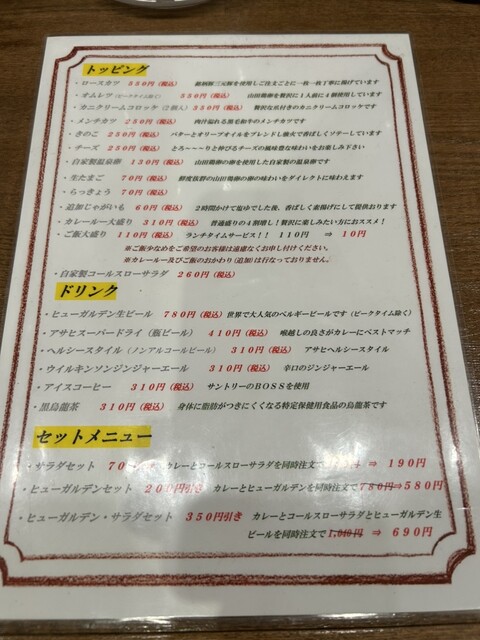 トッピング
・ロースカツ 550円（税込） 銘柄豚三元豚を使用しご注文ごとに一枚一枚丁寧に揚げています
・オムレツ（ピークタイム除く） 550円（税込） 山田鶏卵を贅沢に１人前に４個使用しています
・カニクリームコロッケ（２個入） 350円（税込） 贅沢な爪付きのカニクリームコロッケです
・メンチカツ 250円（税込） 肉汁溢れる黒毛和牛のメンチカツです
・きのこ 250円（税込） バターとオリーブオイルをブレンドし強火で香ばしくソテーしています
・チーズ 250円（税込） とろ～～～りと伸びるチーズの風味豊な味わいをお楽しみ下さい
・自家製温泉卵 130円（税込） 山田鶏卵の卵を使用した自家製の温泉卵です
・生たまご 70円（税込） 鮮度抜群の山田鶏卵の卵の味わいをダイレクトに味わえます
・らっきょう 70円（税込）
・追加じゃがいも 60円（税込） ２時間かけて塩ゆでした後、香ばしく素揚げにして提供おります
・カレールー大盛り 310円（税込） 普通盛りの４割増し！贅沢に楽しみたい方におススメ！
・ご飯大盛り 110円（税込） ランチタイムサービス！！ 110円 ⇒ 10円
※ご飯少なめをご希望のお客様は遠慮なくお申し付けください。
※カレールー及びご飯のおかわり（追加）は行なっておりません。
・自家製コールスローサラダ 260円（税込）
ドリンク
・ヒューガルデン生ビール 780円（税込）世界で大人気のベルギービールです（ピークタイム除く）
・アサヒスーパードライ（瓶ビール） 410円（税込） 喉越しの良さがカレーにベストマッチ
・ヘルシースタイル（ノンアルコールビール） 310円（税込） アサヒヘルシースタイル
・ウイルキンソンジンジャーエール 310円（税込） 辛口のジンジャーエール
・アイスコーヒー 310円（税込） サントリーのＢＯＳＳを使用
・黒烏龍茶 310円（税込） 身体に脂肪がつきにくくなる特定保健用食品の烏龍茶です
セットメニュー
・サラダセット 70 カレーとコールスローサラダを同時注文で ⇒ 190円
・ヒューガルデンセット 200円引き カレーとヒューガルデンを同時注文で780円⇒580円
・ヒューガルデン・サラダセット 350円引き カレーとコールスローサラダとヒューガルデン生
ビールを同時注文で1,040円 ⇒ 690円